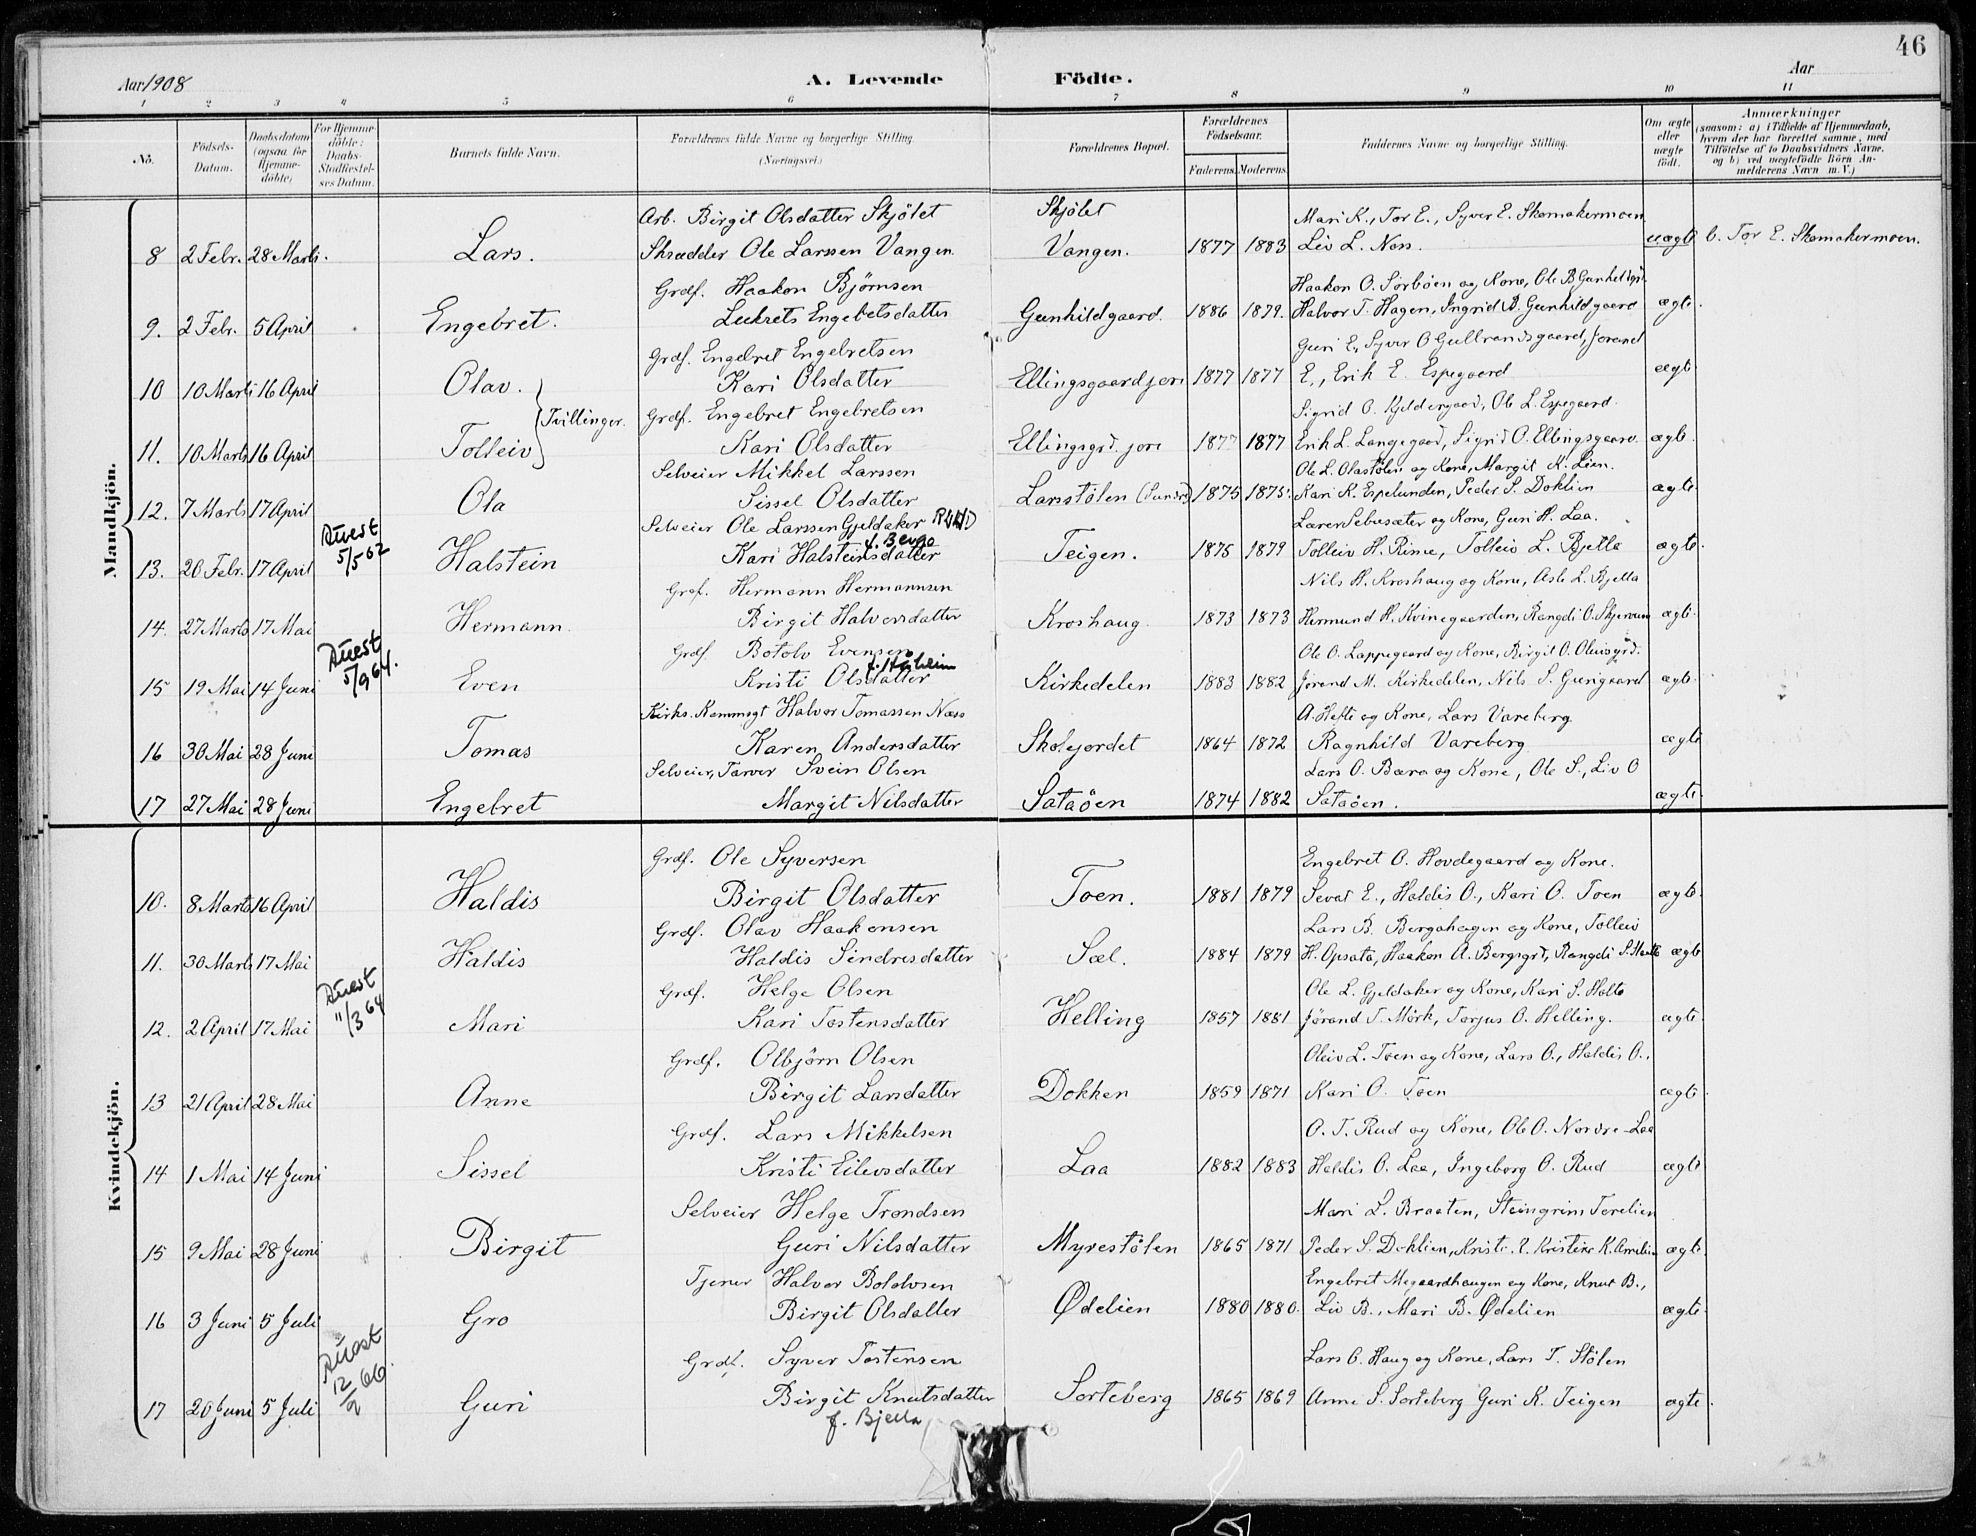 46
Aar 1908
A. Levende Födte.
Aar
1 2 3 4 5 6 7 8 9 10 11
No.
Födsels-Datum.
Daabsdatum (ogsaa for Hjemme-döbte)
For Hjemme-döbte: Daabs-Stadfæstel-ses Datum.
Barnets fulde Navn.
Forældrenes fulde Navne og borgerlige Stilling. (Næringsvei.)
Forældrenes Bopæl.
Forældrenes Födselsaar.
Faderens. Moderens.
Faddernes Navne og borgerlige Stilling.
Om ægte eller uægte födt.
Anmærkninger
(saasom: a) i Tilfælde af Hjemmedaab, hvem der har forrettet samme, med Tilföielse af to Daabsvidners Navne. og b) ved uægtefödte Börn An-melderens Navn m. V.)
Mandkjön.
Arb. Birgit Olsdatter Skjölet Skjölet Mari K., Tor E., Syver E. Skomakermoen
8 2 Febr. 28 Marts. Lars. Skrædder Ole Larssen Vangen Vangen. 1877 1883 Liv L. Næss. uægte b. Tor E. Skomakermoen.
Grdf. Haakon Björnsen Haakon O. Sorböen og Kone, Ole B. Gunhildgrd.
9. 2 Febr. 5 April Engebret. Lukrets Engebretsdatter Gunhildgaard. 1886 1879. Halvor T. Hagen, Ingrid B. Gunhildgaard ægte.
Grdf. Engebret Engebretsen Guri E., Syver O Gulbrandsgaard, Jorand
10 10 Marts 16 April Olav. Kari Olsdatter Ellingsgaardjore 1877 1877 E., Erik E. Espegaard ægte
Tvillinger. Grdf. Engebret Engebretsen Sigrid O. Kjeldergaard, Ole L. Espegaard.
11. 10 Marts 16 April Tolleiv Kari Olsdatter Ellingsgrd. jore 1877 1877 Erik L. Langegaard, Sigrid O. Ellingsgaard ægte.
Selveier Mikkel Larssen Ole L. Olastölen og Kone, Margit K. Lien.
12. 7 Marts 17 April Ola Sissel Olsdatter Larsstölen (Sundre) 1875 1875. Kari K. Espelunden, Peder S. Doklien ægte.
Selveier Ole Larssen Gjeldaker RUUD Lærer Sebusæter og Kone, Guri H. Laa.
f. Berge
13. 20 Febr. 17 April Attest 5/5 62 Halstein Kari Halsteinsdatter Teigen. 1875 1879 Tolleiv H. Rime, Tolleiv L. Bjella ægte.
Grdf. Hermann Hermannsen Nils H. Kroshaug og Kone, Asle L. Bjella
14. 27 Marts 17 Mai Hermann. Birgit Halvorsdatter Kroshaug. 1873 1873 Hermund H. Kvinegaarden, Rangdi O. Skjervum ægte.
Grdf. Botolv Evensen Ole O. Lappegaard og Kone, Birgit O. Oleivsgrd.
f. Högheim
15 19 Mai 14 Juni Attest 5/9 64. Even Kristi Olsdatter Kirkedelen 1883 1882 Jorand M. Kirkedelen, Nils S. Gurigaard ægte.
Kirks. Kommsgt Halvor Tomassen Næss A. Hefte og Kone, Lars Vareberg
16 30 Mai 28 Juni Tomas Karen Andersdatter Skolejordet 1864 1872 Ragnhild Vareberg ægte
Selveier, Farver Svein Olsen Lars O. Bæra og Kone, Ole S., Liv O
17 27 Mai 28 Juni Engebret Margit Nilsdatter Sataöen 1874 1882 Sataöen. ægte.
Kvindekjön.
Grdf. Ole Syversen Engebret O. Hovdegaard og Kone.
10. 8 Marts 16 April Haldis Birgit Olsdatter Toen. 1881 1879 Sevat E., Haldis O., Kari O. Toen ægte.
Grdf. Olav Haakonsen Lars B. Bergahagen og Kone, Tolleiv
11. 30 Marts 17 Mai Haldis Haldis Sindresdatter Sæl. 1884 1879 H. Opsata, Haakon A. Bergsgrd, Rangdi S. Holte ægte
Grdf. Helge Olsen Ole L. Gjeldaker og Kone, Kari S. Holto
12. 2 April 17 Mai Attest 11/3 64 Mari Kari Tostensdatter Helling 1857 1881 Jörand T. Mörk, Torjus O. Helling. ægte.
Grdf. Olbjörn Olsen Oleiv L. Toen og Kone, Lars O., Haldis O.,
13 21 April 28 Mai Anne Birgit Larsdatter Dokken 1859 1871 Kari O. Toen ægte
Grdf. Lars Mikkelsen O. T. Rud og Kone, Ole O. Nordre-Laa
14 1 Mai 14 Juni Sissel Kristi Eilevsdatter Laa 1882 1883 Haldis O. Laa, Ingeborg O. Rud ægte
Selveier Helge Trondsen Mari L. Braaten, Steingrim Torelien
15 9 Mai 28 Juni Birgit Guri Nilsdatter Myrestölen 1865 1871 Peder S. Doklien, Kristi. E. Kristine K. ægte.
Tjener Halvor Botolvsen Engebret Megaardhaugen og Kone, Knut B.,
16 3 Juni 5 Juli Gro Birgit Olsdatter Ødelien 1880 1880. Liv B., Mari B. Ødelien ægte.
Grdf. Syver Tostensen Lars O. Haug og Kone, Lars T. Stölen
17 20 Juni 5 Juli Attest 12/2 66. Guri Birgit Knutsdatter Sorteberg 1865 1869 Anne S. Sorteberg Guri K. Teigen ægte.
f. Bjella